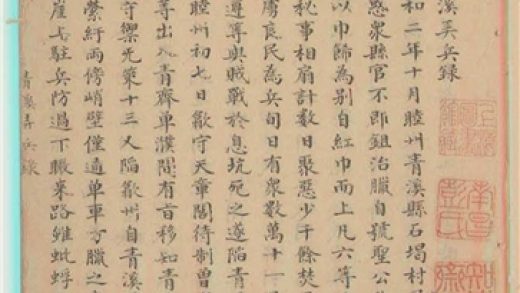 南昌
彭氏
知
溪弄兵錄
和二年十月睦州青溪縣石堨村
惑衆縣官不即鉏治臘自號聖公
以巾飾為別自紅巾而上凡六等
秘事相扇計數日聚惡少千餘焚
虜良民為兵旬日有衆數萬十一
遵等與賊戰於息坑死之遂陷青
睦州初七日歙守天章閣待制曾
等出入青齊單濮間有旨移知青
守禦無策十三又陷歙州自青溪
縈紆兩傍峭壁僅通單車方臘之
崖上駐兵防遏下瞰來路雖蚍蜉
青溪弄兵錄